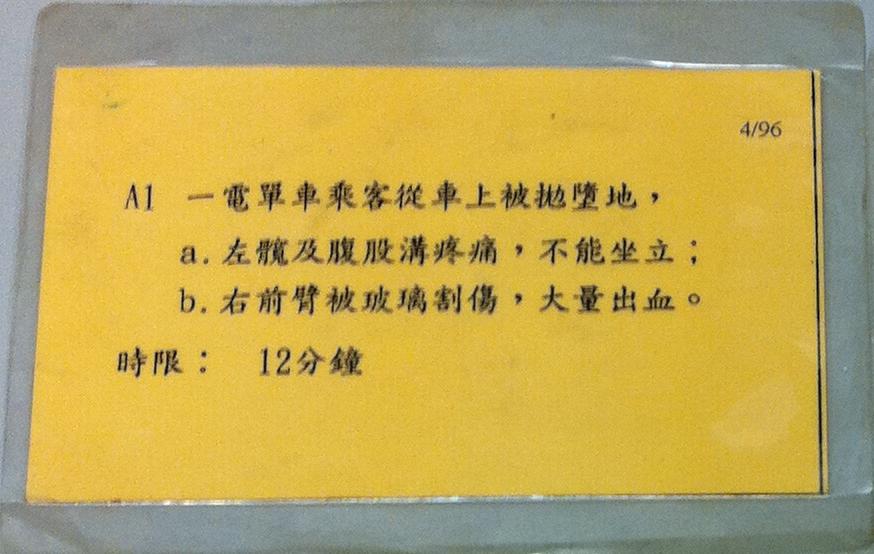 4/96
A1 一電單車乘客從車上被拋墮地，
a. 左髖及腹股溝疼痛，不能坐立；
b. 右前臂被玻璃割傷，大量出血。
時限： 12分鐘